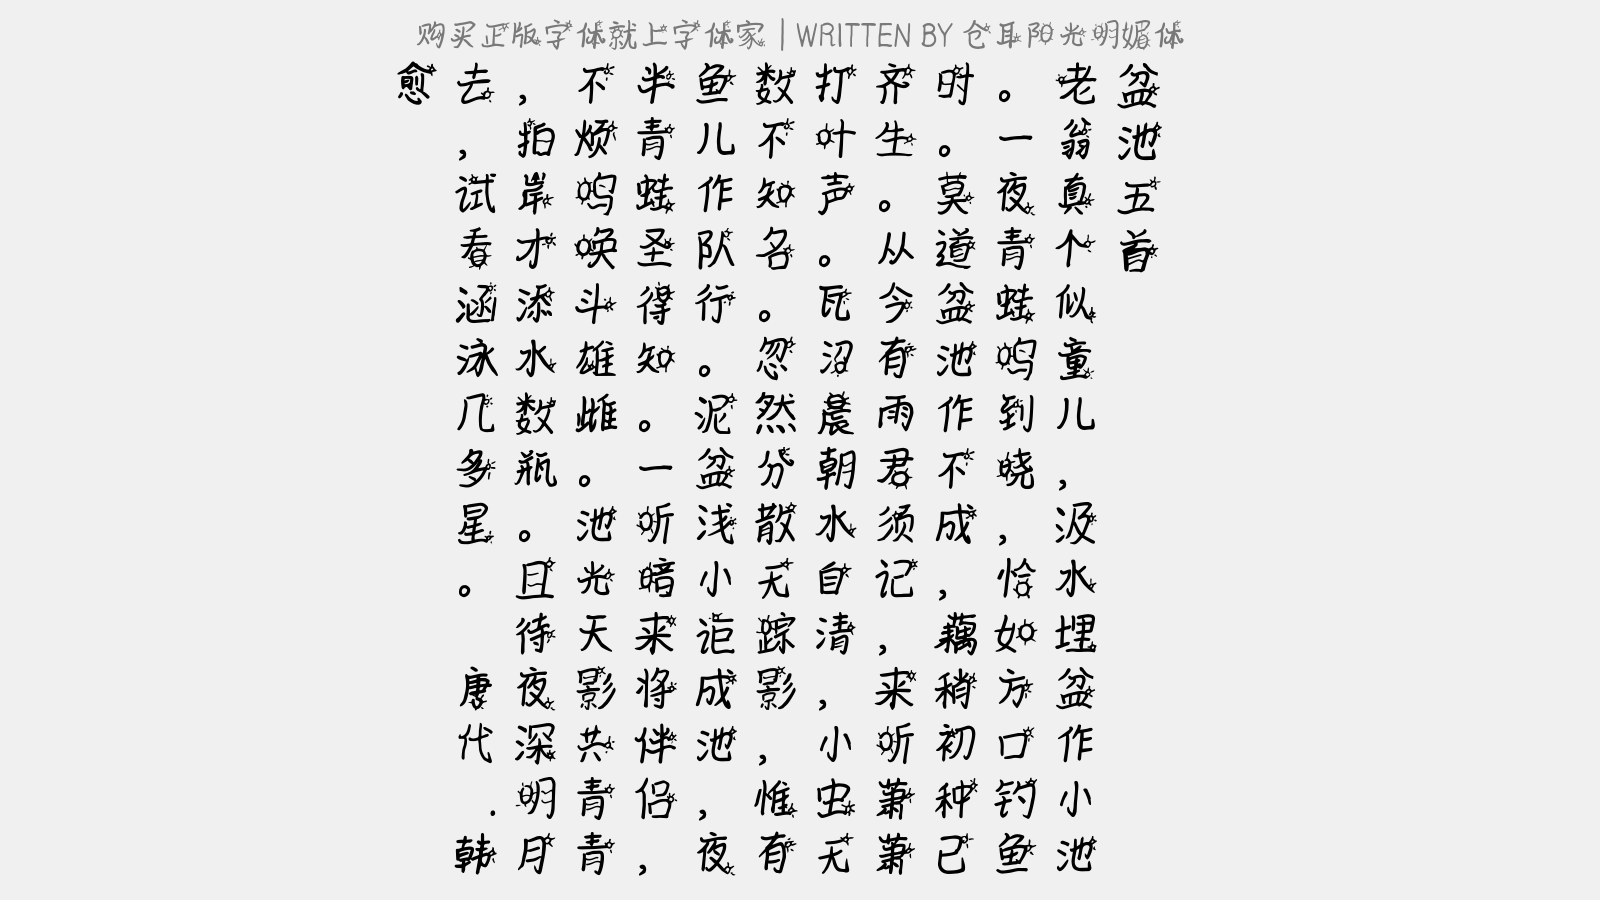 购买正版字体就上字体家 | WRITTEN BY 仓耳阳光明媚体
盆池五首
老翁真个似童儿，汲水埋盆作小池
。一夜青蛙鸣到晓，恰如方口钓鱼
时。莫道盆池作不成，藕稍初种已
齐生。从今有雨君须记，来听萧萧
打叶声。瓦沼晨朝水自清，小虫无
数不知名。忽然分散无踪影，惟有
鱼儿作队行。泥盆浅小讵成池，夜
半青蛙圣得知。一听暗来将伴侣，
不烦鸣唤斗雄雌。池光天影共青青
，拍岸才添水数瓶。且待夜深明月
去，试看涵泳几多星。 唐代.韩
愈